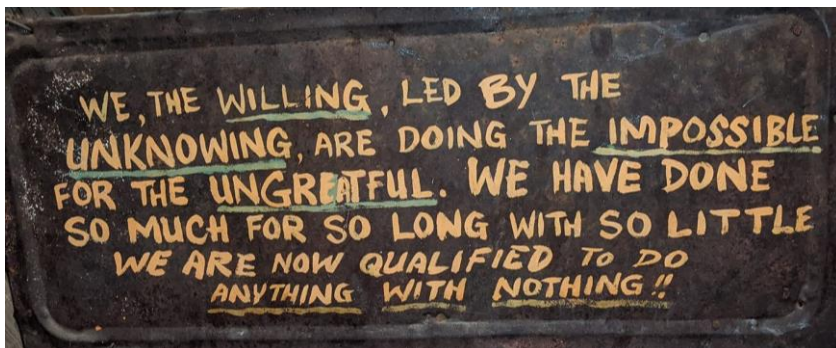 WE, THE WILLING, LED BY THE
UNKNOWING, ARE DOING THE IMPOSSIBLE
FOR THE UNGREATFUL. WE HAVE DONE
SO MUCH FOR SO LONG WITH SO LITTLE
WE ARE NOW QUALIFIED TO DO
ANYTHING WITH NOTHING!!